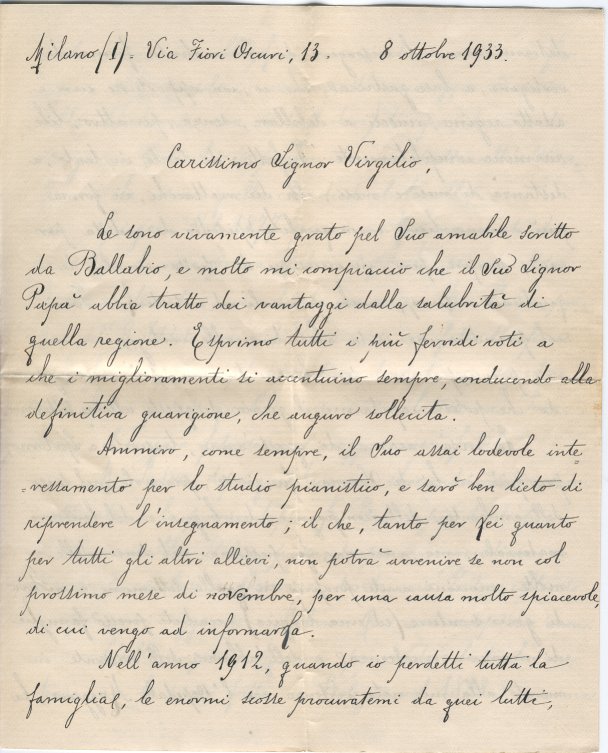 Milano (I) - Via Fiori Oscuri, 13. 8 ottobre 1933.
Carissimo Signor Virgilio,
Le sono vivamente grato pel Suo amabile scritto
da Ballabio, e molto mi compiaccio che il Suo Signor
Papà abbia tratto dei vantaggi dalla salubrità di
quella regione. Esprimo tutti i più fervidi voti a
che i miglioramenti si accentuino sempre, conducendo alla
definitiva guarigione, che auguro sollecita.
Ammiro, come sempre, il Suo assai lodevole inte=
=ressamento per lo studio pianistico, e sarò ben lieto di
riprendere l'insegnamento; il che, tanto per Lei quanto
per tutti gli altri allievi, non potrà avvenire se non col
prossimo mese di novembre, per una causa molto spiacevole,
di cui vengo ad informarLa.
Nell'anno 1912, quando io perdetti tutta la
famiglia, le enormi scosse procuratemi da quei lutti,